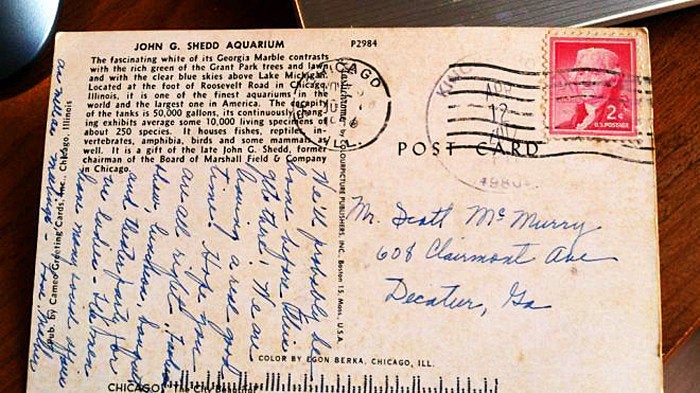 JOHN G. SHEDD AQUARIUM
P2984
The fascinating white of its Georgia Marble contrasts
with the rich green of the Grant Park trees and lawn
and with the clear blue skies above Lake Michigan.
Located at the foot of Roosevelt Road in Chicago,
Illinois, it is one of the finest aquariums in the
world and the largest one in America. The capacity
of the tanks is 50,000 gallons, its continuously chang-
ing exhibits average some 10,000 living specimens of
about 250 species. It houses fishes, reptiles, in-
vertebrates, amphibia, birds and some mammals as
well. It is a gift of the late John G. Shedd, former
chairman of the Board of Marshall Field & Company
in Chicago.
Pub. by Cameo Greeting Cards, Inc., Chicago, Illinois
by COLOURPICTURE PUBLISHERS, INC., Boston 15, Mass., U.S.A.
CHICAGO
AUG
12
2¢
U.S. POSTAGE
POST CARD
We'll probably be
home before this
gets there! We are
having a real good
time! Hope you
are all right. Fashion
show, luncheons, banquet
and theater party for
the ladies
Mr. Scott McMurry
608 Clairmont Ave
Decatur, Ga
COLOR BY EGON BERKA, CHICAGO, ILL.
CHICAGO, The City Beautiful